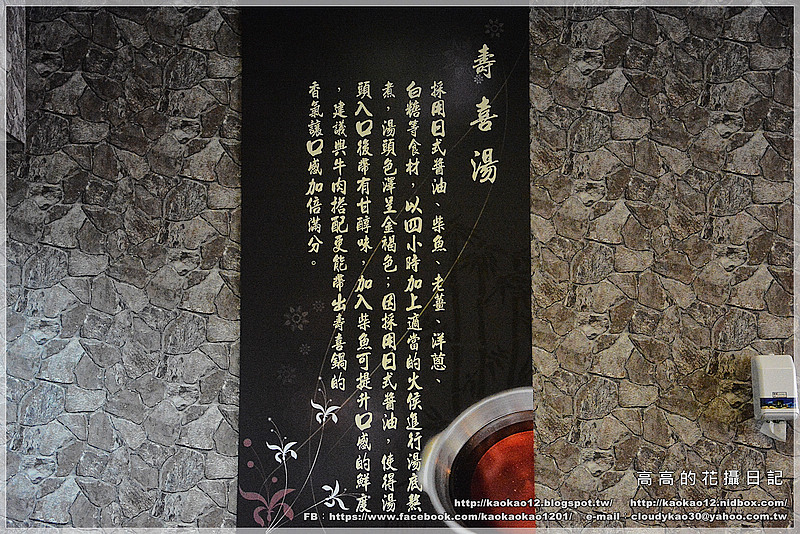 壽喜湯
採用日式醬油、柴魚、老薑、洋蔥、
白糖等食材，以四小時加上適當的火候進行湯底熬
煮，湯頭色澤呈金褐色；因採用日式醬油，使得湯
頭入口後帶有甘醇味，加入柴魚可提升口感的鮮度
，建議與牛肉搭配更能帶出壽喜鍋的
香氣讓口感加倍滿分。
高高的花攝日記
http://kaokao12.blogspot.tw/ http://kaokao12.nidbox.com/
FB：https://www.facebook.com/kaokaokao1201/ e-mail：cloudykao30@yahoo.com.tw